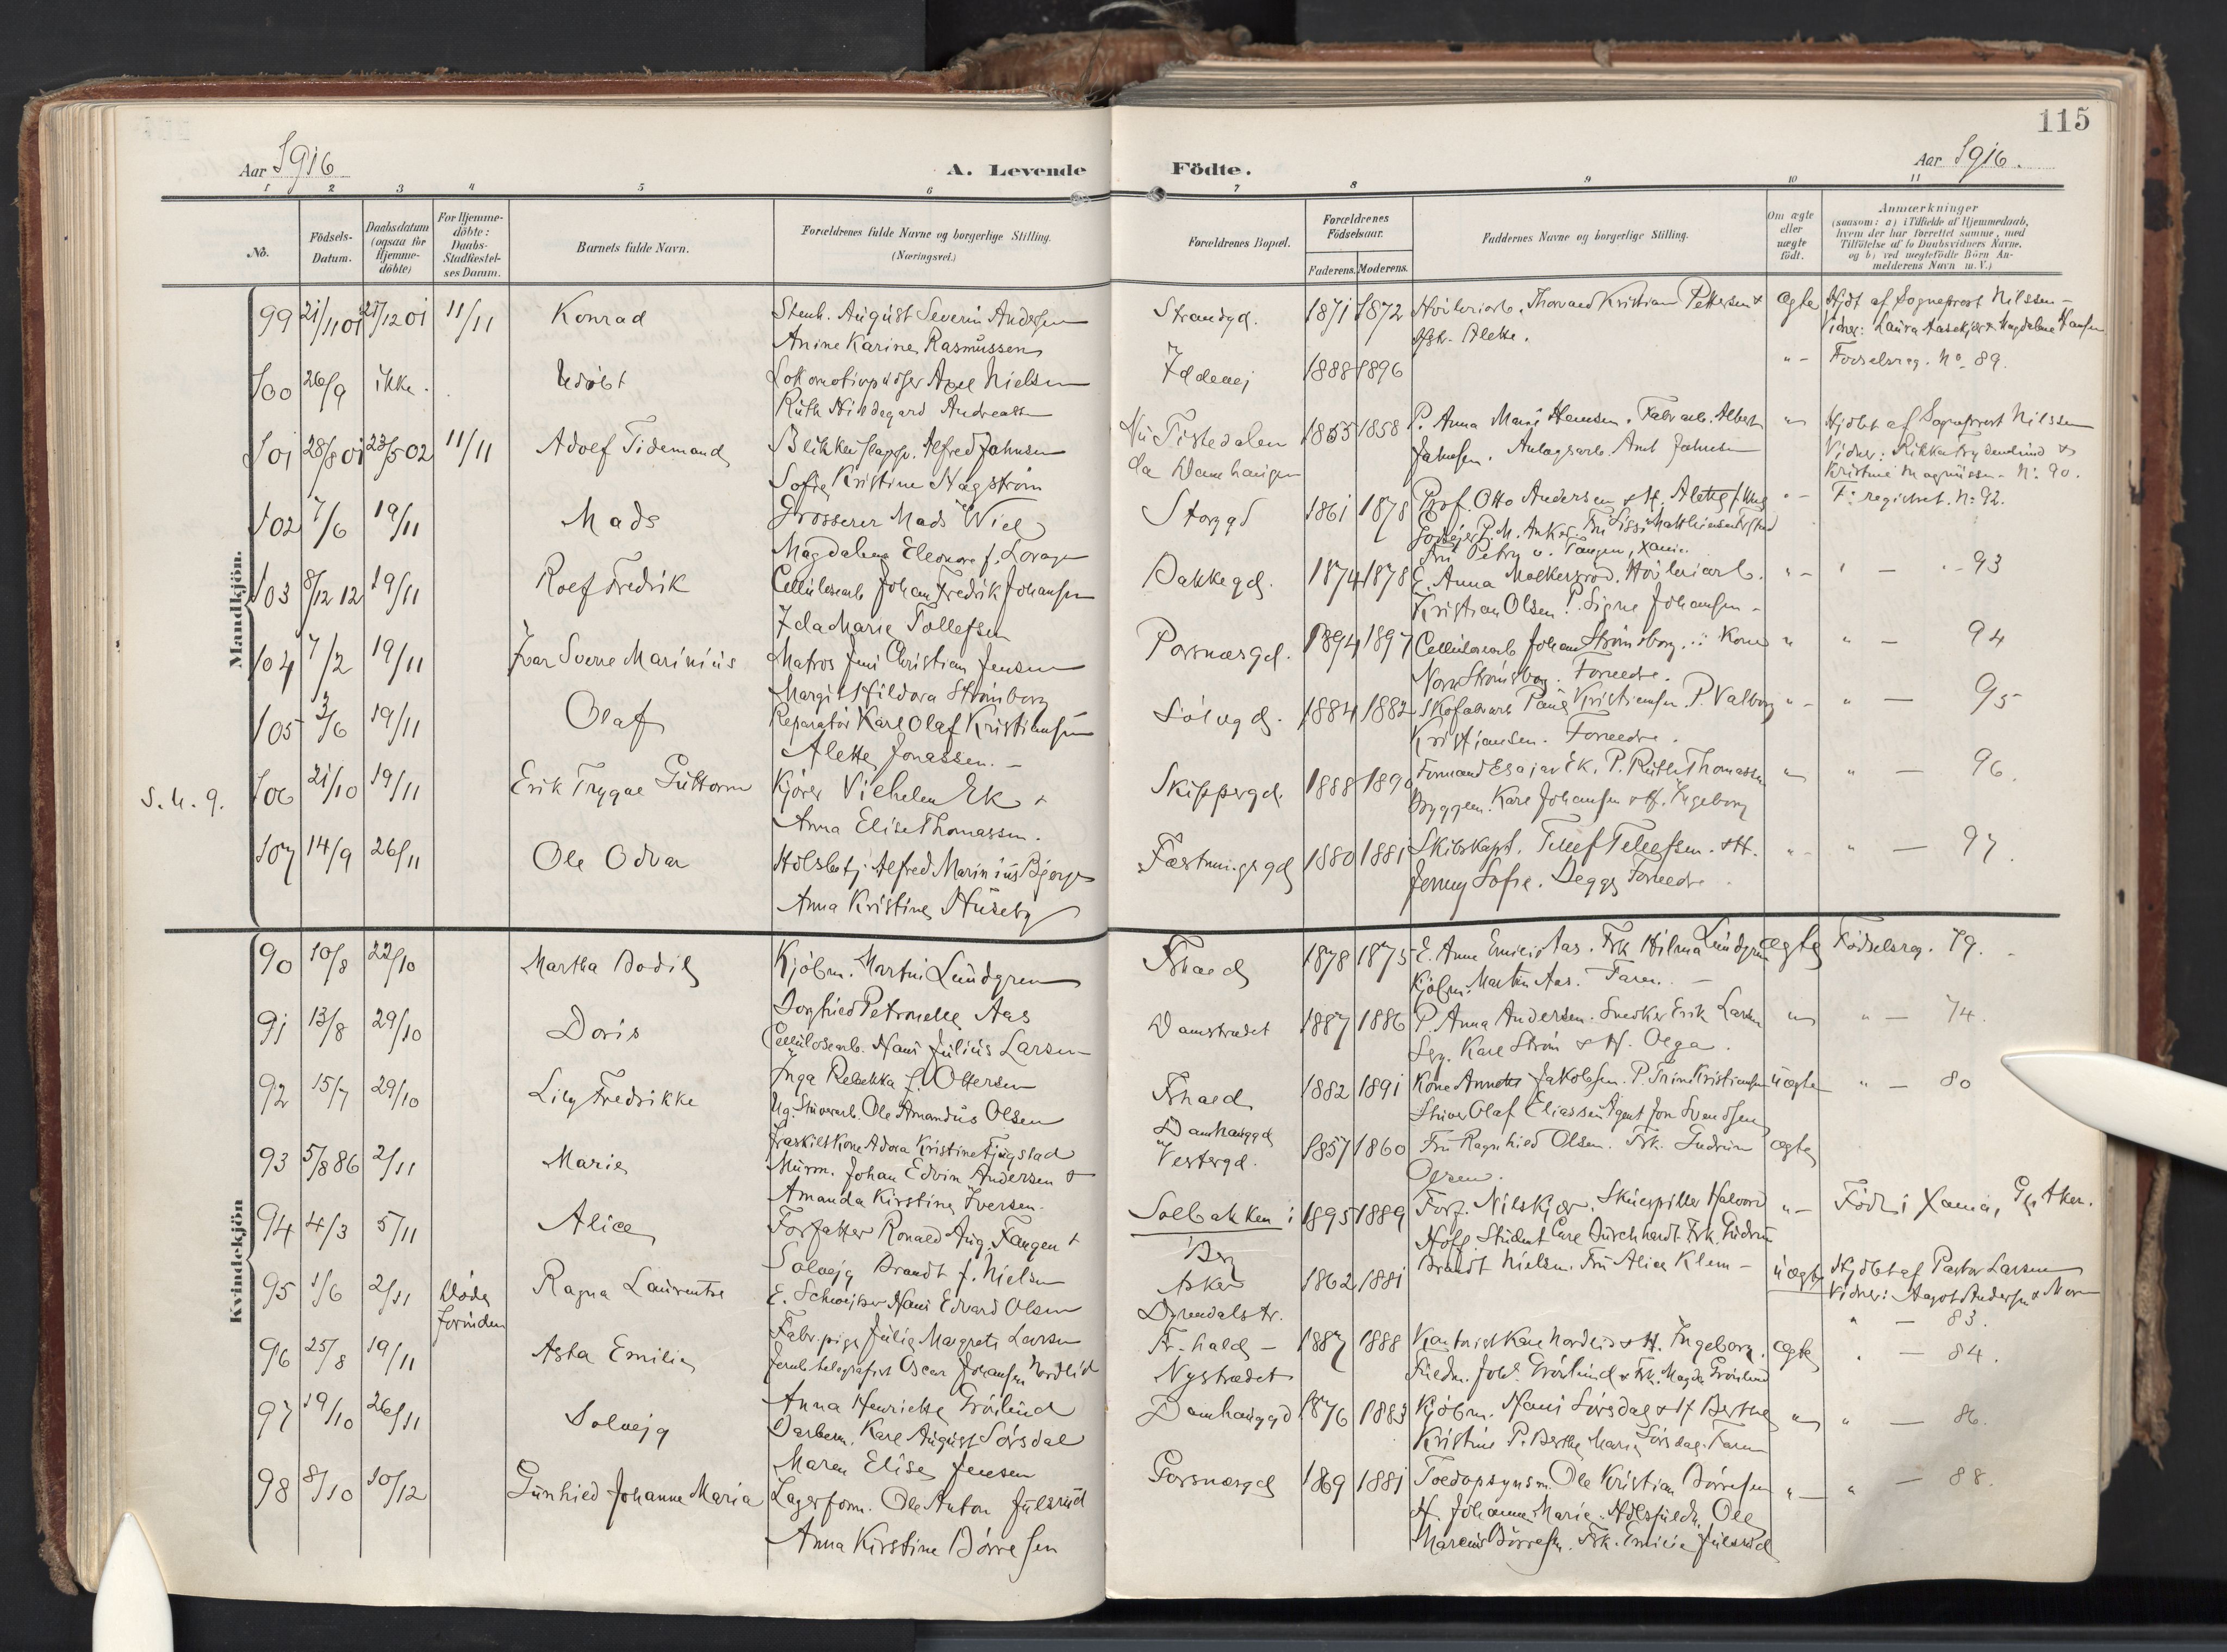 115
Aar 1916
A. Levende
Födte.
Aar 1916.
1 2 3 4 5 6 7 8 9 10 11
No.
Födsels-
Datum.
Daabsdatum
(ogsaa for
Hjemme-
döbte)
For Hjemme-
döbte:
Daabs-
Stadfæstel-
ses Datum.
Barnets fulde Navn.
Forældrenes fulde Navne og borgerlige Stilling.
(Næringsvei.)
Forældrenes Bopæl.
Forældrenes
Födselsaar.
Faderens. Moderens.
Faddernes Navne og borgerlige Stilling.
Om ægte
eller
uægte
födt.
Anmærkninger
(saasom: a) i Tilfælde af Hjemmedaab,
hvem der har forrettet samme, med
Tilföielse af to Daabsvidners Navne.
og b) ved uægtefödte Börn An-
melderens Navn m. V.)
Mandkjön.
99 21/11 01 27/12 01 11/11 Konrad Stenh. August Severin Andersen Strandgd. 1871 1872 Thorvald Kristian Pettersen & ægte Hjdt af Sogneprest Nilssen -
Anine Karine Rasmussen Alette.
100 26/9 ikke. Udöbt Lokomotivpudser Axel Nielsen Iddevej 1888 1896 " - Fødselsreg. No 89.
Ruth Hildegard Andreassen
101 28/8 01 23/5 02 11/11 Adolf Tidemand Alfred Johnsen Nu Tistedalen 1855 1858 P. Anna Marie Hansen. Fabr arb. Albert " Hjdöbt af Sogneprest Nilssen
Sofie Kristine Hagström da Damhaugen Johnsen.
Kristine Magnussen - No. 90.
102 7/6 19/11 Mads Grosserer Mads Wiel Storgd 1861 1878 Prof. Otto Andersen " - F: registret. No. 92.
Magdalene Eleonore f.
103 8/12 12 19/11 Rolf Fredrik Cellulosearb Johan Fredrik Johansen Bakkegd. 1874 1878 E. Anna " - " - 93
Ida Marie Tollefsen Kristian Olsen. P. Signe Johansen -
104 7/2 19/11 Ivar Sverre Marinius Matros Jens Christian Jensen Porsnæsgd. 1894 1897 Cellulosearb Johan Strömsborg. Kone " " - 94
Margit Hildora Strömsborg Nora Strömsborg. Foreldre.
105 3/6 19/11 Olaf Reparatör Karl Olaf Kristiansen Sölvgd. 1884 1882 Skofabrarb Paul Kristiansen P. Valborg " - " - 95
Alette Jonassen. - Kristiansen. Foreldre.
S. u. 9.
106 21/10 19/11 Erik Trygve Guttorm Kjörer Vilhelm Ek & Skippergd. 1888 1890 Formand Esajas Ek. P. Ruth Thomassen " " - 96.
Anna Elise Thomassen. Karl Johansen & H. Ingeborg
107 14/9 26/11 Ole Odvar Alfred Marinius Fæstningsgd 1880 1881 Skibskapt. Tellef Tellefsen. & H. " - " - 97.
Anna Kristine Huseby Jenny Sofie. Begge Foreldre.
Kvindekjön
90 10/8 22/10 Martha Bodil Kjöbm. Martin Lundgren Fr.hald 1878 1875 E. Anne Emilie Aas. Frk Hilma Lundgren ægte Födselsreg. 79.
Borghild Petronelle Aas Kjöbm. Martin Aas. Faren. -
91 13/8 29/10 Doris Cellulosearb. Hans Julius Larsen - Damstrædet 1887 1886 P. Anna Andersen. Snedker Erik Larsen " " - 74.
Inga Rebekka f. Ottersen Karl Ström & H. Olga.
92 15/7 29/10 Lily Fredrikke Ug. Stuverarb. Ole Amandus Olsen Fr.hald 1882 1891 Kone Annette Jakobsen. P. Trine Kristiansen uægte " - 80
Fraskilt Kone Adora Kristine Fjugstad Stuver Olaf Eliassen Agent Jon Svendsen
93 5/8 86 2/11 Marie Murm. Johan Edvin Andersen & Damhauggd 1857 1860 Fru Ragnhild Olsen. Frk. Gudrun ægte
Amanda Kirstine Iversen. Vestergd. Olsen.
94 4/3 5/11 Alice Forfatter Ronald Aug. Fangen & Solbakken i 1895 1889 Forf. Nils Kjær. Skuespiller Halvard " - Födt i Xania, Aker.
Solveig Brandt f. Nielsen Berg Student Carl Burchhardt. Frk. Gudrun
Brandt Nielsen. Fru Alice Klem -
95 1/6 2/11 Döde forinden Ragna Laurentse E. Schweitser Hans Edvard Olsen Asker 1862 1881 uægte Hjdöbt af Pastor Larsen
Fabr.pige Julie Margrete Larsen Dyrendalstr. " - 83.
96 25/8 19/11 Asta Emilie Jernb.telegrafist Oscar Johansen Nordlid Fr-hald - 1887 1888 Karl Nordlid & H. Ingeborg. ægte " - 84.
Anna Henriette Grönlund Nystrædet Frk. Magda Grönlund
97 19/10 26/11 Solveig Barberm. Karl August Sörsdal Damhauggd 1876 1883 Kjöbm. Hans Sörsdal & H Berthe " " - 86.
Maren Elise Jensen Kristine P. Berthe Marie Sörsdal. Faren
98 8/10 10/12 Gunhild Johanne Maria Lagerform. Ole Anton Julsrud Porsnæsgd 1869 1881 Toldopsynsm. Ole Kristian Börresen " - " - 88.
Anna Kirstine Börresen H. Johanne Marie. Ole
Marius Börresen. Frk. Emilie Julsrud